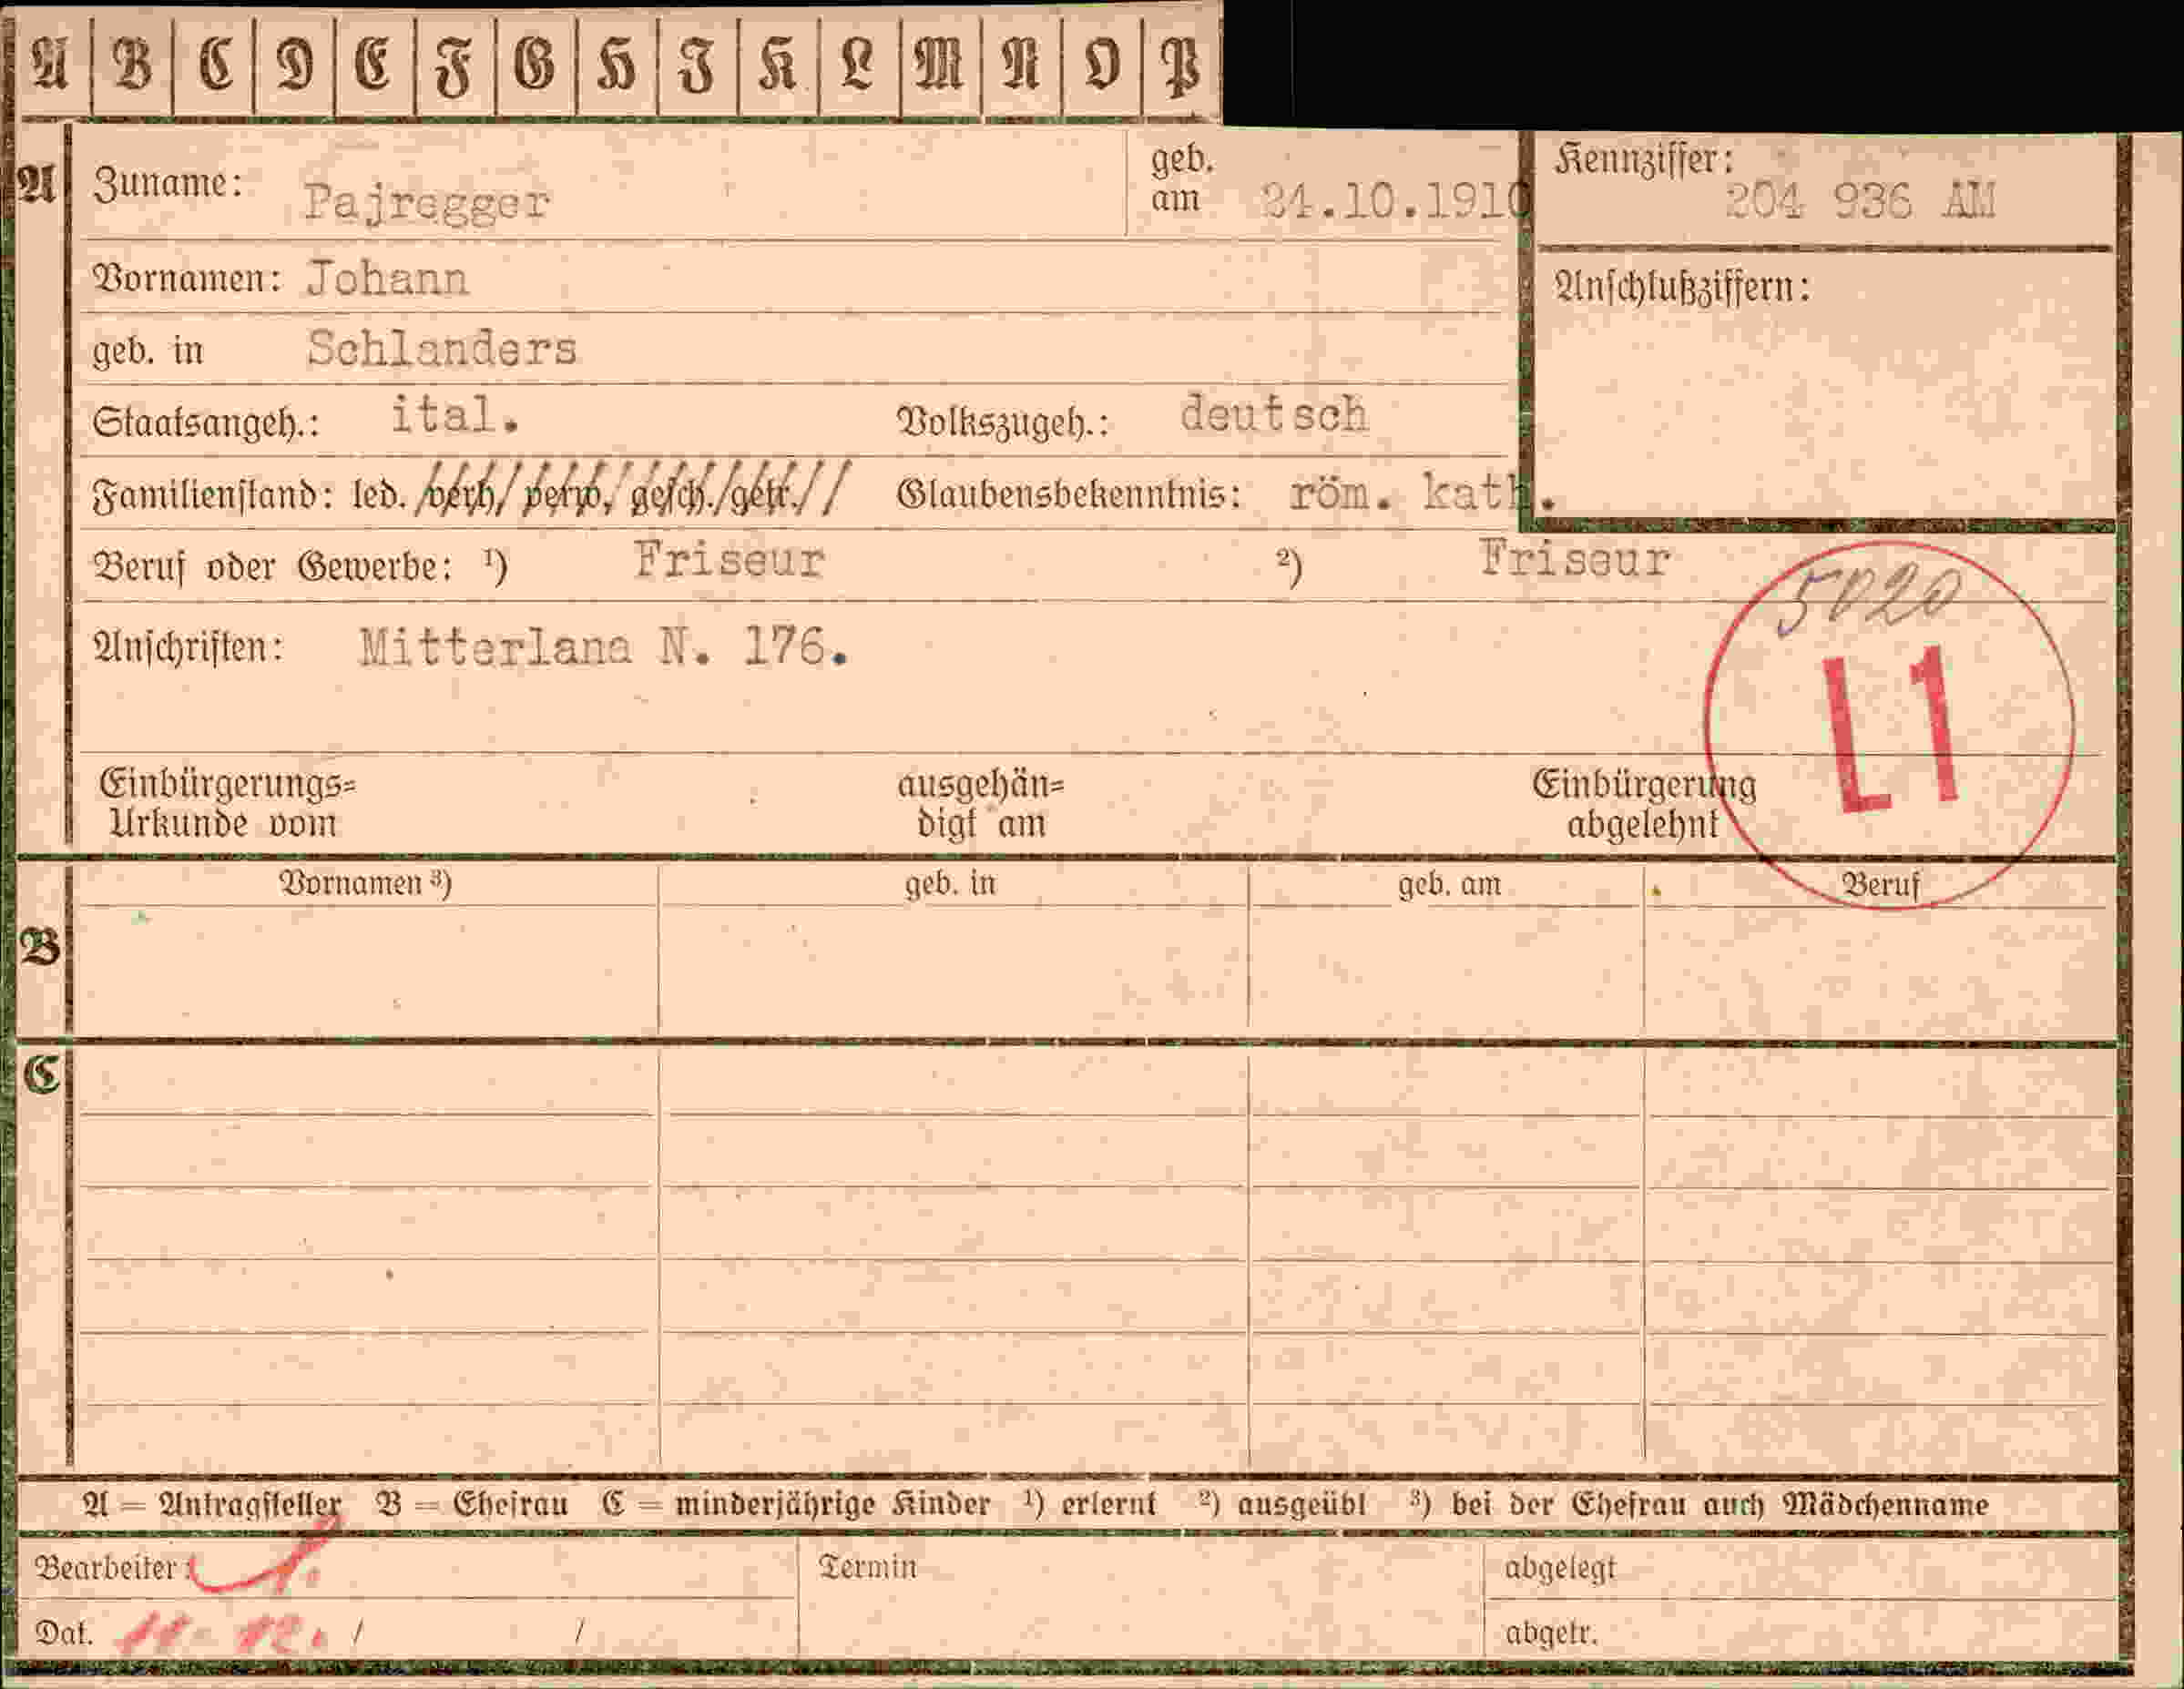 A B C D E F G H I K L M N O P
A Zuname: Pajregger geb. am 24.10.1910 Kennziffer: 204 936 AM
Vornamen: Johann Anschlußziffern:
geb. in Schlanders
Staatsangeh.: ital. Volkszugeh.: deutsch
Familienstand: led. verh. verw. gesch. getr. Glaubensbekenntnis: röm. kath.
Beruf oder Gewerbe: ¹) Friseur ²) Friseur
5020
Anschriften: Mitterlana N. 176.
L1
Einbürgerungs= ausgehän= Einbürgerung
Urkunde vom digt am abgelehnt
Vornamen ³) geb. in geb. am Beruf
B
C
A = Antragsteller B = Ehefrau C = minderjährige Kinder ¹) erlernt ²) ausgeübt ³) bei der Ehefrau auch Mädchenname
Bearbeiter: Termin abgelegt
Dat. / / abgetr.